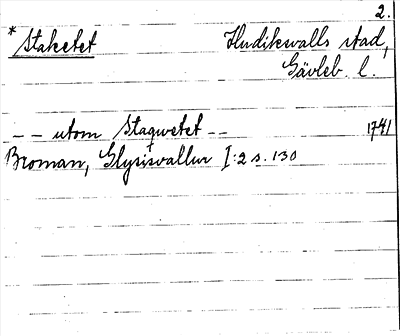 2.
*Staketet Hudikswalls stad,
Gävleb. l.
-- utom Staqwetet -- 1741
Broman, Glysisvallur I:2 s. 130